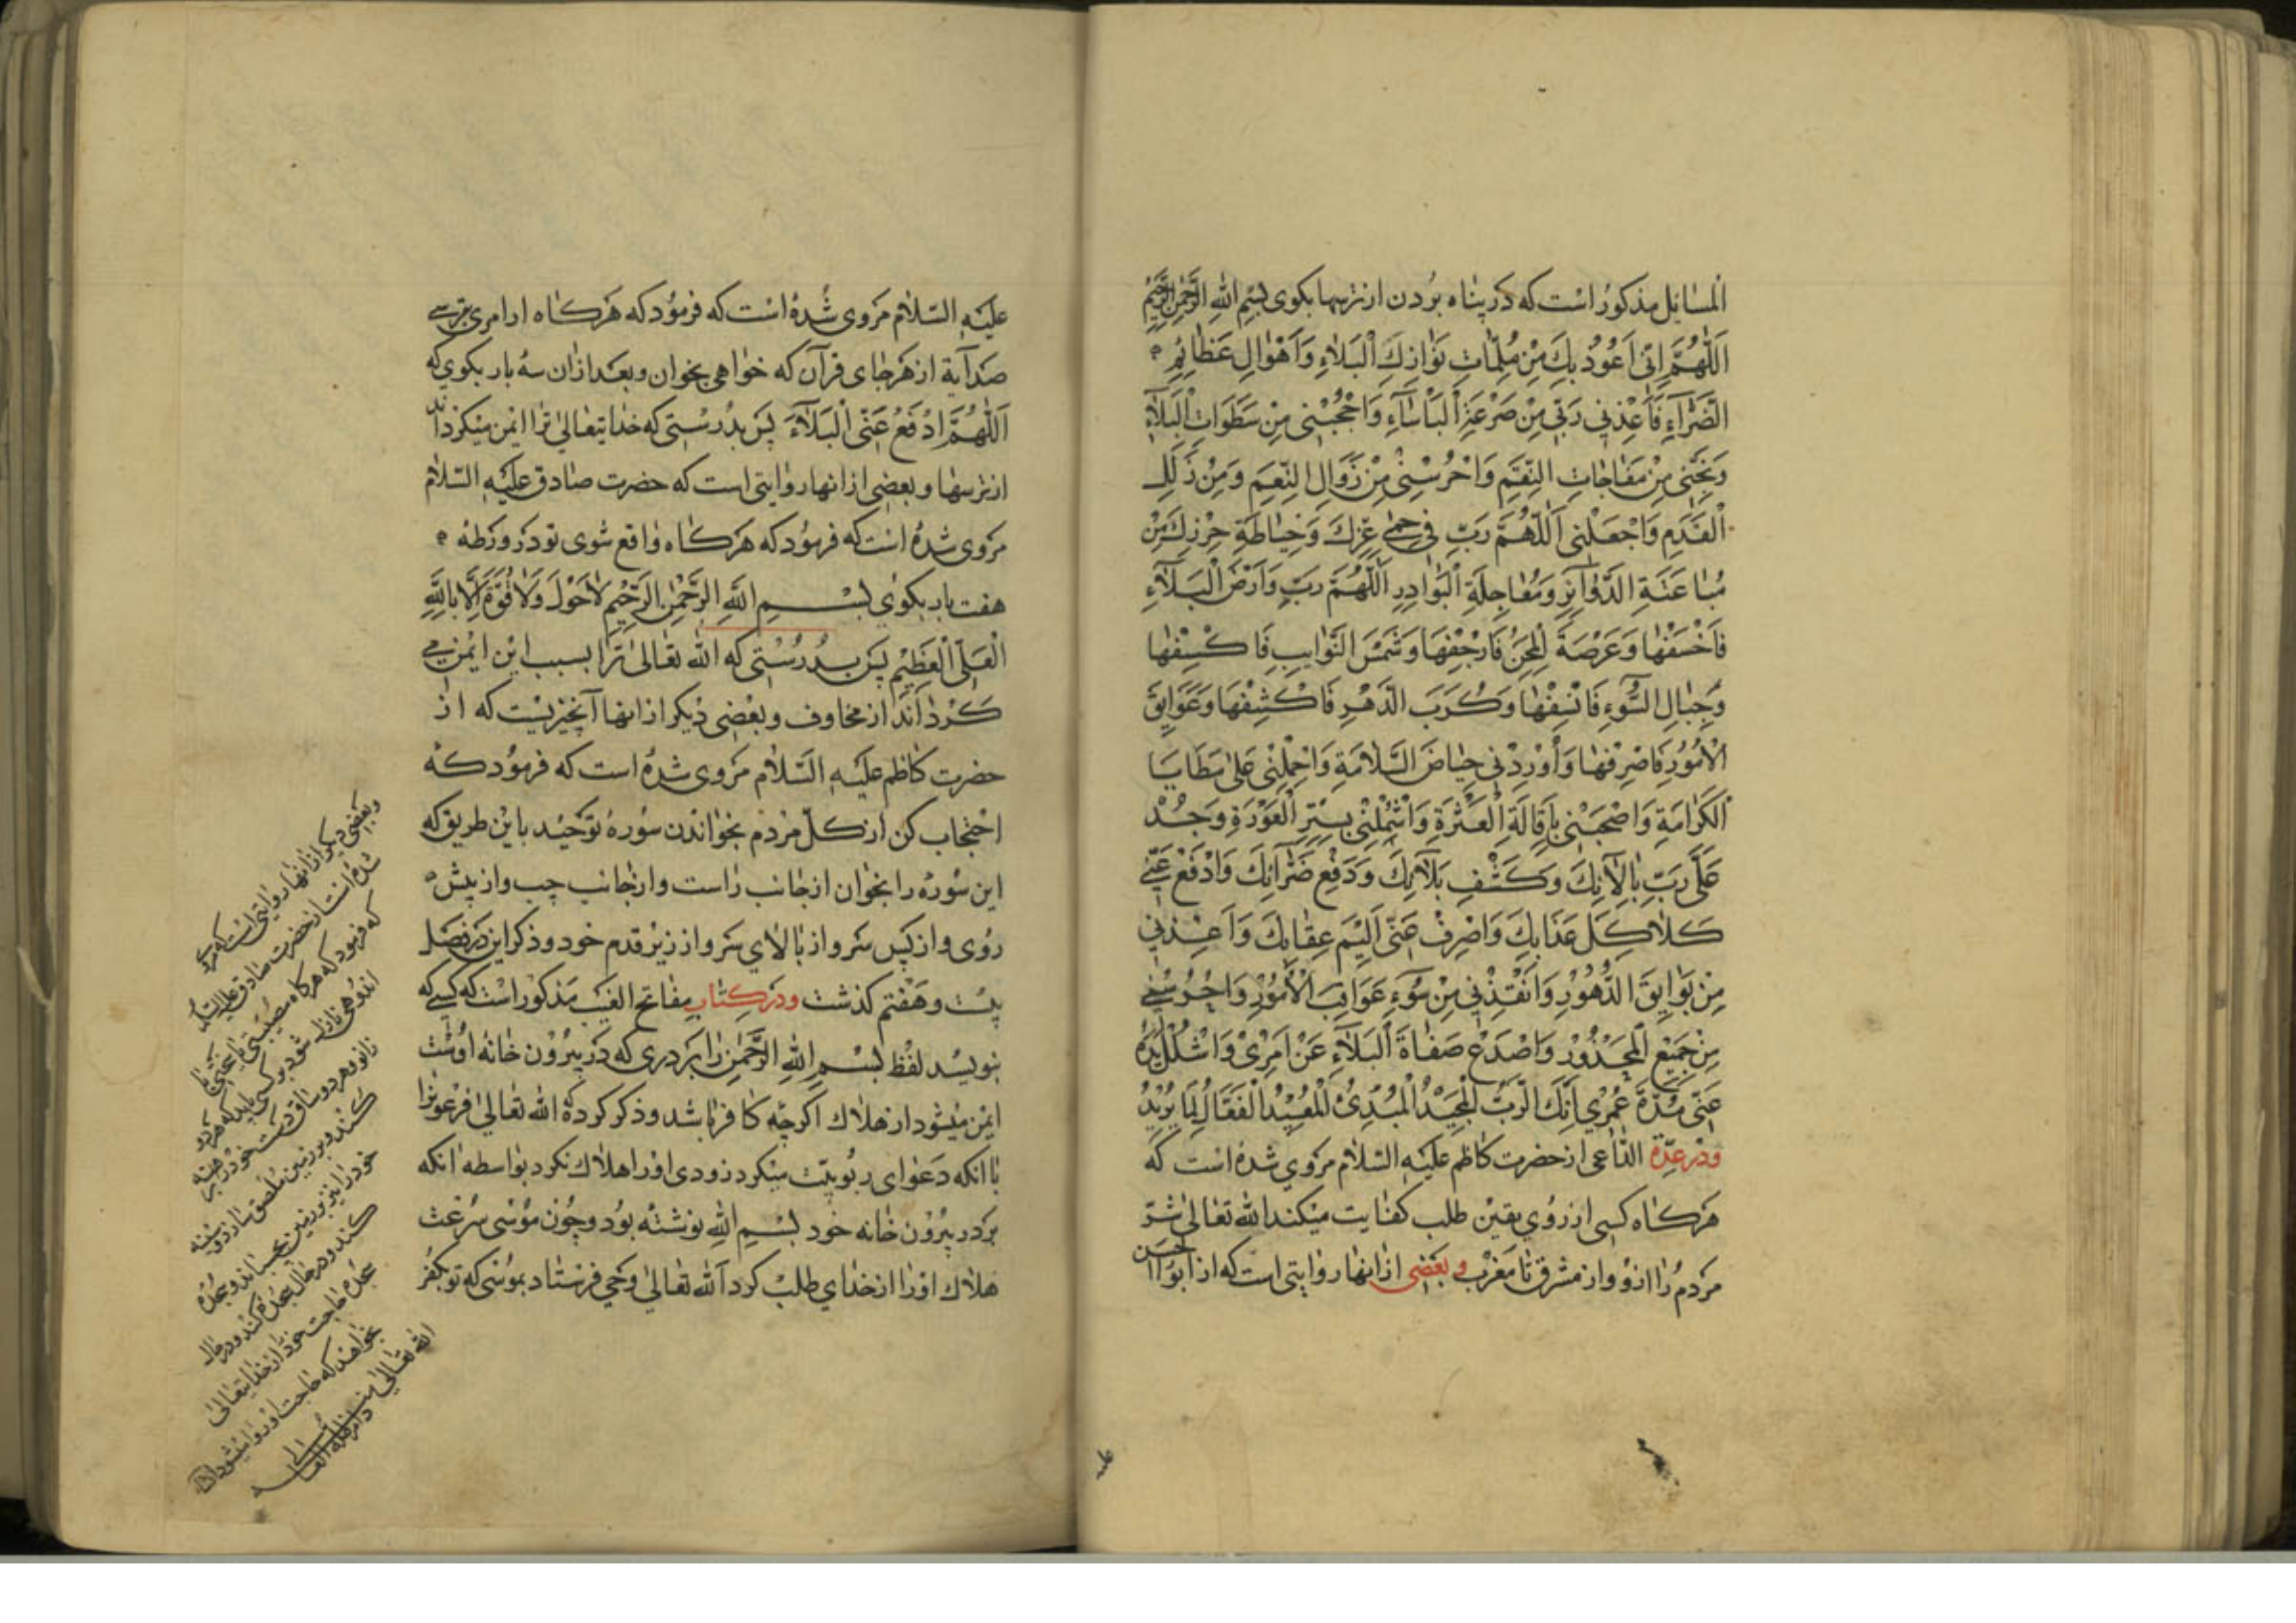 المسائل مذكور است كه در پناه بردن از ترسها بكوی بسم الله الرحمن الرحیم
اَللّٰهُمَّ اِنّی اَعُوذُ بِكَ مِنْ مُلِمّاتِ نَوازِلِ الْبَلاءِ وَاَهْوالِ عَظائِمِ
الضَّرّآءِ فَاَعِذْنی رَبّی مِنْ صَرْعَةِ الْبَأساءِ وَاحْجُبْنی مِنْ سَطَواتِ الْبَلاءِ
وَنَجِّنی مِنْ مُفاجاتِ النِّقَمِ وَاحْرُسْنی مِنْ زَوالِ النِّعَمِ وَمِنْ زَلَلِ
الْقَدَمِ وَاجْعَلْنی اَللّٰهُمَّ رَبِّ فی حِمٰی عِزِّكَ وَحِیاطَةِ حِرْزِكَ مِنْ
مُباغَتَةِ الدَّوآئِرِ وَمُعاجِلَةِ الْبَوادِرِ اَللّٰهُمَّ رَبِّ وَاَرْضَ الْبَلآءِ
فَاخْسِفْها وَعَرْصَةَ الْمِحَنِ فَارْجُفْها وَشَمْسَ النَّوائِبِ فَاكْسِفْها
وَجِبالَ السُّوءِ فَانْسِفْها وَكُرَبَ الدَّهْرِ فَاكْشِفْها وَعَوائِقَ
الْاُمُورِ فَاصْرِفْها وَاَوْرِدْنی حِیاضَ السَّلامَةِ وَاحْمِلْنی عَلٰی مَطایا
الْكَرامَةِ وَاصْحَبْنی بِاِقالَةِ الْعَثْرَةِ وَاشْمُلْنی بِسِتْرِ الْعَوْرَةِ وَجُدْ
عَلَیَّ رَبِّ بِآلآئِكَ وَكَشْفِ بَلآئِكَ وَدَفْعِ ضَرّآئِكَ وَادْفَعْ عَنّی
كَلاكِلَ عَذابِكَ وَاصْرِفْ عَنّی اَلیمَ عِقابِكَ وَاَعِذْنی
مِنْ بَوایِقِ الدُّهُورِ وَانْقِذْنی مِنْ سُوءِ عَواقِبِ الْاُمُورِ وَاحْرُسْنی
مِنْ جَمیعِ الْمَحْذُورِ وَاصْدَعْ صَفاةَ الْبَلآءِ عَنْ اَمْری وَاشْلُلْ یَدَهُ
عَنّی مُدَّةَ عُمْری اِنَّكَ الرَّبُّ الْمَجیدُ الْمُبْدِئُ الْمُعیدُ الْفَعّالُ لِما یُریدُ
ودر عدّة الدّاعی از حضرت كاظم علیه السّلام مروی شده است كه
هركاه كسی از روی یقین طلب كفایت میكند الله تعالی شرّ
مردم را از او از مشرق تا مغرب وبعضی از انها روایتی است كه از ابو الحسن
علیه السّلام مروی شده است كه فرمود كه هركاه از امری ترسی
صد آیة از هر جای قرآن كه خواهی بخوان وبعد ازان سه بار بكوی كه
اَللّٰهُمَّ ادْفَعْ عَنّی الْبَلآءَ پس بدرستی كه خدایتعالی ترا ایمن میكرداند
از ترسها وبعضی از انها روایتی است كه حضرت صادق علیه السّلام
مروی شده است كه فرمود كه هركاه واقع شوی تو در ورطه
هفت بار بكوی بسم الله الرّحمن الرّحیم لاحول ولاقوّة الا بالله
العلیّ العظیم پس بدرستی كه الله تعالی ترا بسبب این ایمن می
كرداند از مخاوف وبعضی دیكر از انها آنچیزیست كه از
حضرت كاظم علیه السّلام مروی شده است كه فرمود كه
احتجاب كن از كلّ مردم بخواندن سوره توحید باین طریق كه
این سوره را بخوان از جانب راست واز جانب چپ واز پیش
روی واز پس سر واز بالای سر واز زیر قدم خود وذكر این در فصل
بیست وهفتم كذشت ودر كتاب مفاتح الغیب مذكور است كه كسی كه
بنویسد لفظ بسم الله الرّحمن را بر دری كه در بیرون خانه اوست
ایمن میشود از هلاك اكرچه كافر باشد وذكر كرده كه الله تعالی فرعونرا
با انكه دعوای ربوبیّت میكرد زودی اورا هلاك نكرد بواسطه انكه
بر در بیرون خانه خود بسم الله نوشته بود وچون موسی سرعت
هلاك اورا از خدای طلب كرد الله تعالی وحی فرستاد بموسی كه تو بكفر
وبعضی دیكر از انها روایتی است كه مروی
شده است از حضرت صادق علیه السّلام
كه فرمود كه هركاه مصیبتی یا
اندوهی نازل شود بر كسی باید كه هردو
زانو وهردو ساق دست خود را برهنه
كند وبر زمین ملصق سازد وسینه
خود را نیز بر زمین بچسباند وسجده
كند ودر حال سجده كند ودر حال
سجده حاجت خود از خدایتعالی
بخواهد كه حاجت او روا میشود ان
الله تعالی